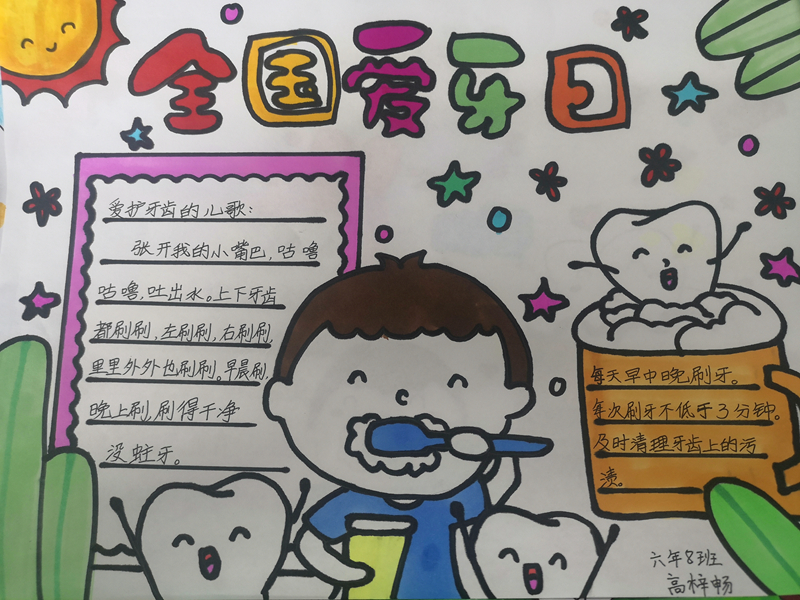 全国爱牙日
爱护牙齿的儿歌:
张开我的小嘴巴,咕噜
咕噜,吐出水。上下牙齿
都刷刷,左刷刷,右刷刷,
里里外外也刷刷。早晨刷,
晚上刷,刷得干净
没蛀牙。
每天早中晚刷牙。
每次刷牙不低于3分钟。
及时清理牙齿上的污
渍。
六年8班
高梓畅